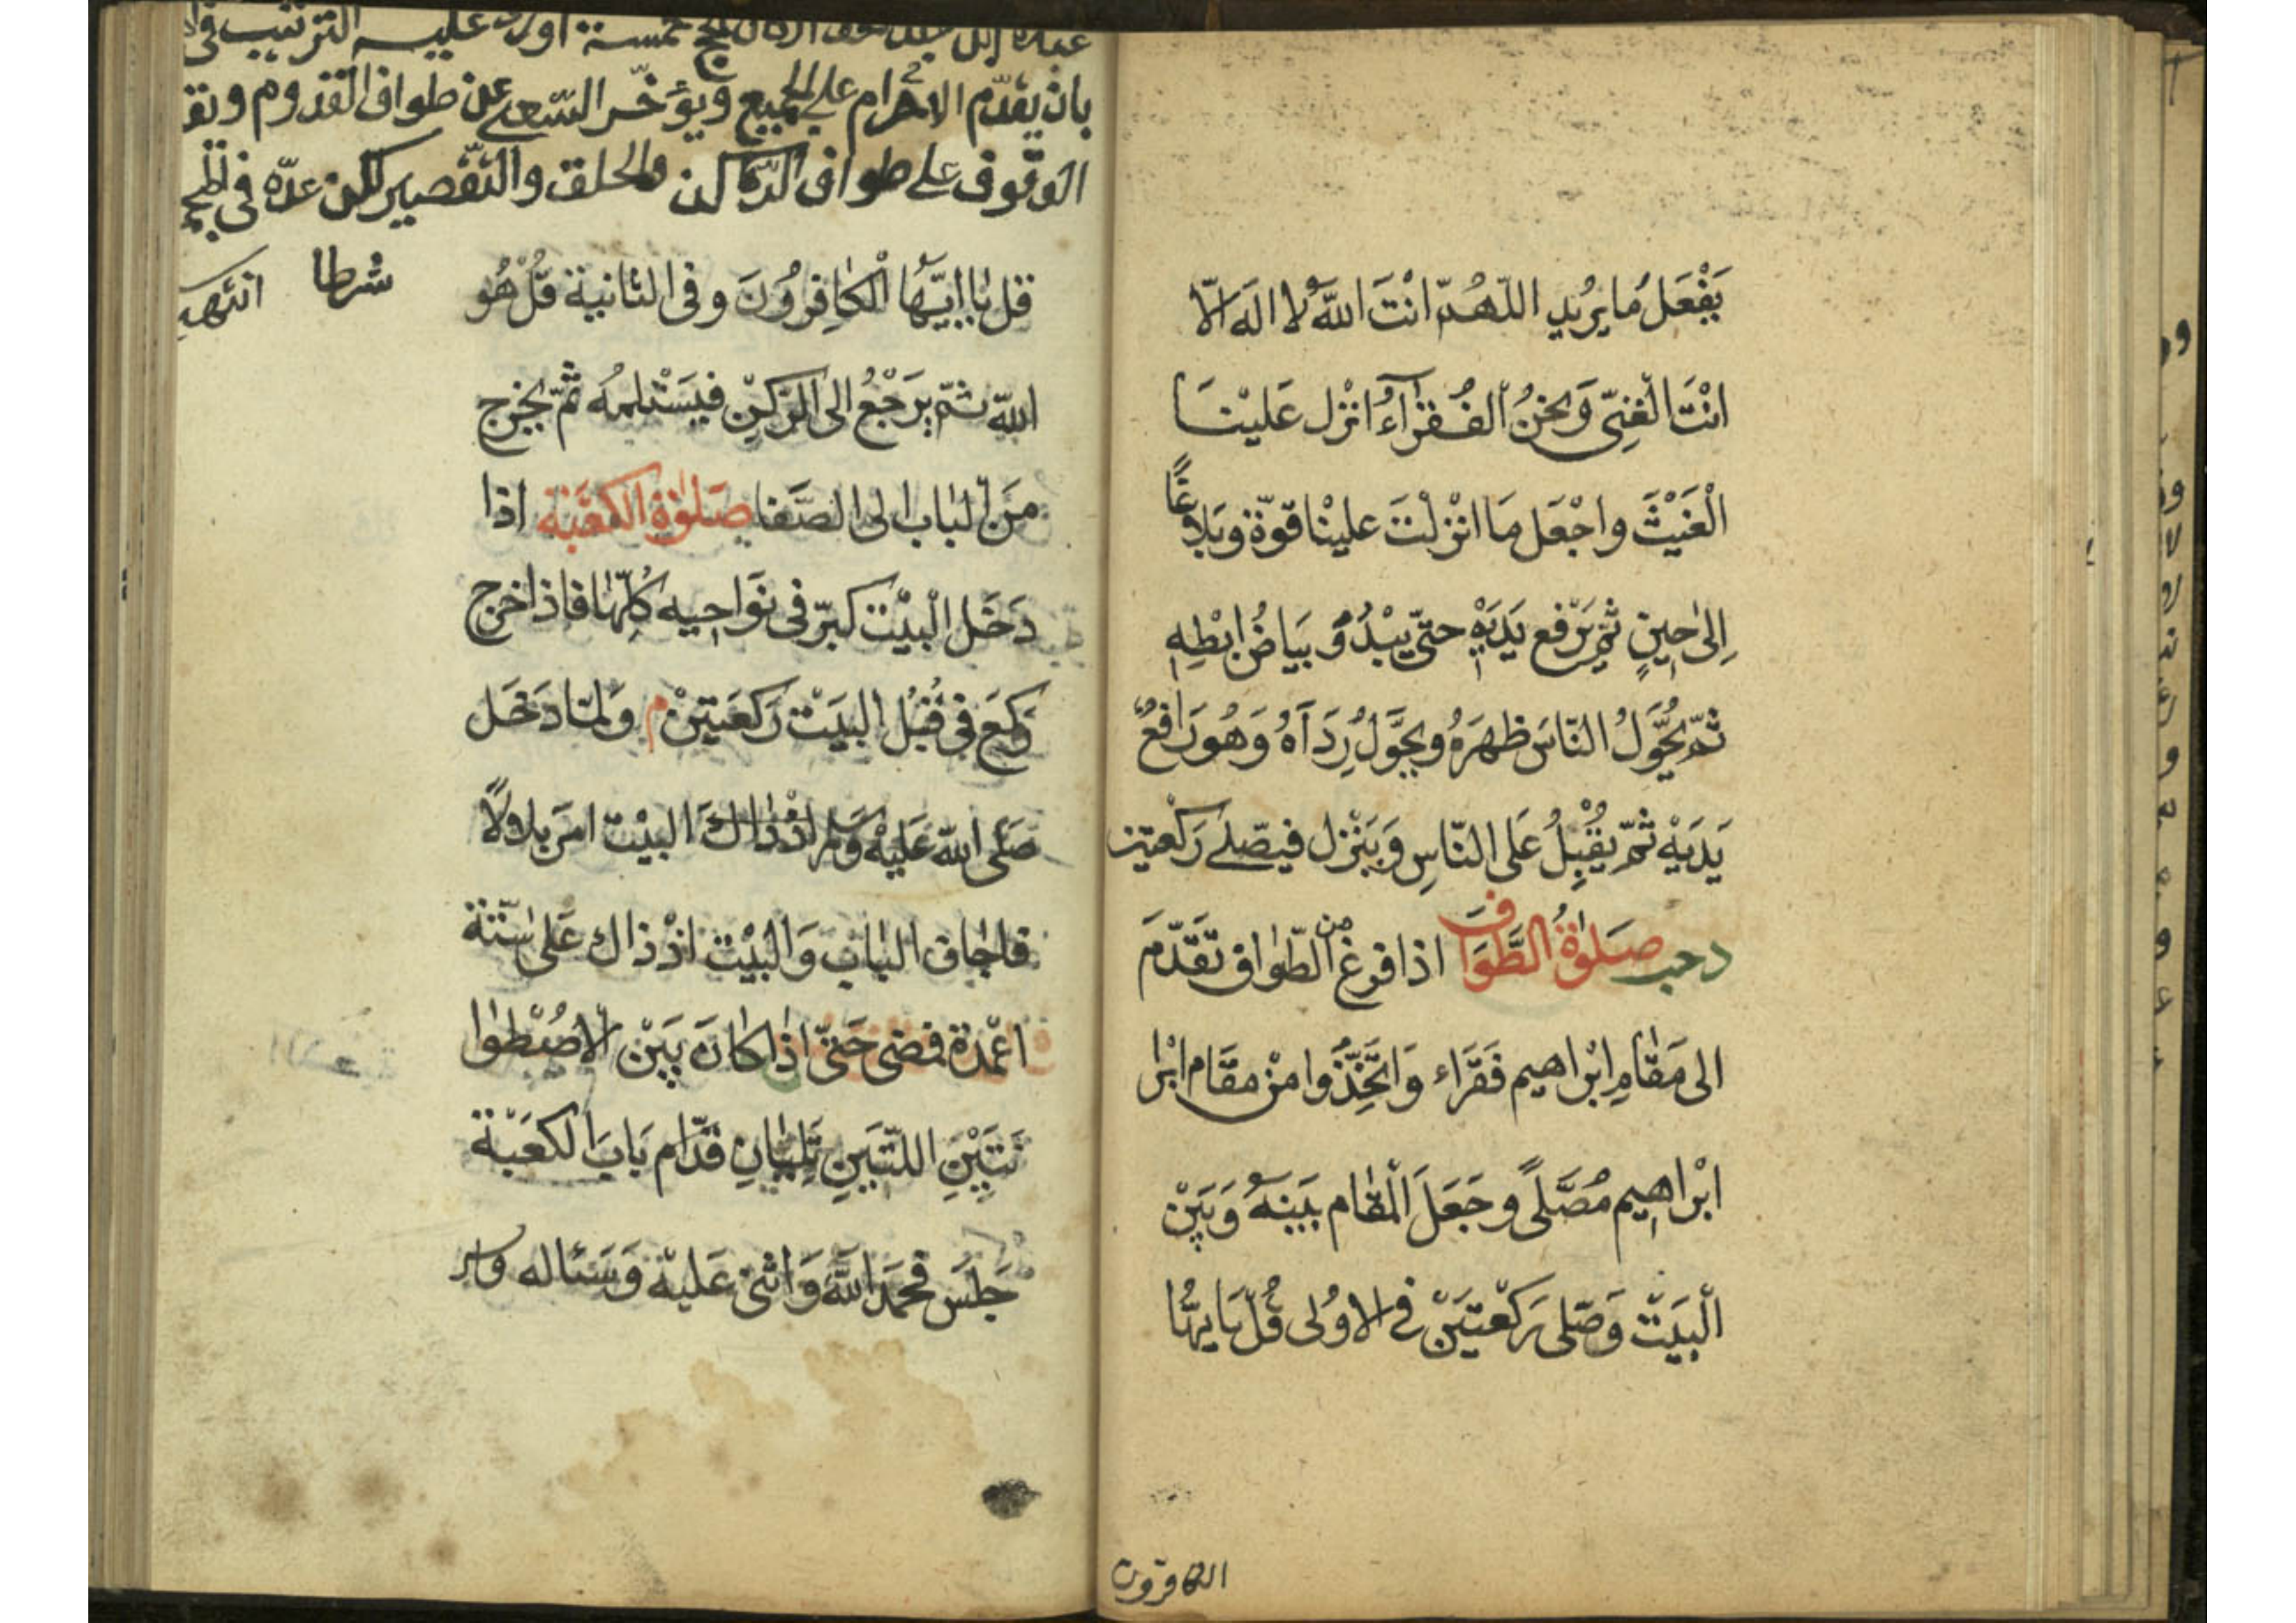 يَفْعَلُ مَا يرُيد اللّهُمّ انْتَ اللهُ لا الَه الّا
انْتَ الْغنِىّ وَنحنُ الْفُقرَآءُ انْزل عَليْنَا
الْغَيْثَ واجْعَل مَا انْزلْتَ عليْنا قوّة وبَلاغًا
اِلىٰ حِينٍ ثمّ يَرْفع يَدَيْهِ حتىّ يبْدُوَ بيَاضُ اِبْطِهِ
ثمّ يُحَوِّلُ النّاسَ ظهرَهُ ويحَوّلُ رِدَآهُ وَهُو رَافعٌ
يَدَيْهِ ثمّ يقُبِلُ عَلى النّاسِ وَينْزل فيصَلى رَكْعتين
د حب صَلوٰةُ الطَّوَاف اذا فرغ من الطّوٰاف تقَدّمَ
الى مَقٰامِ ابْراهيم فَقَراء وَاتّخِذُوا منْ مقَام ابْرا
ابْراهِيم مُصَلّىً وجَعَلَ الْمقٰام بَينهُ وَبَيْن
الْبيَتْ وَصَلى رَكْعتيَنْ في الاوُلى قُلْ يَا ايهّا
الكافرون
بان يقدّم الاحرام على الجميع ويؤخّر السّعى عن طواف القدوم وتق
الوقوف على طواف الرّكن والحلق والتّقصير لكن عدّه فى المج
شرطا انتهى
قل يٰا ايّهَا الْكٰافِرُونَ وفى الثانية قُلْ هُو
اللهُ ثمّ يرَجْعُ الى الرّكنْ فيَسْتلمُه ثمّ يخرج
منَ البٰاب الى الصّفَا صَلوٰةُ الكعْبَة اذا
دَخَل الْبيْت كبرّ فى نوَاحِيه كُلّهٰا فاذا خرج
رَكعَ فى قُبُل البيَتْ رَكعَتيَنْ م وَلمّا دَخَل
صَلّى الله عَليْه وَسلم اذْ ذاكَ البيْت امرَ بلالاً
فاجاف البٰابَ وَالْبيْت اذْ ذاك عَلىٰ ستّة
اعْمِدَة فمضى حَتّى اذا كاٰنَ بَيْن الاصْطوٰا
نَتَيْنِ اللّتيَنِ تلِيٰانِ قدّام بَابَ الكعَبْة
جَلسَ فحمَدَ اللهَ وَاثنىٰ عَليْه وَسَئاله واس